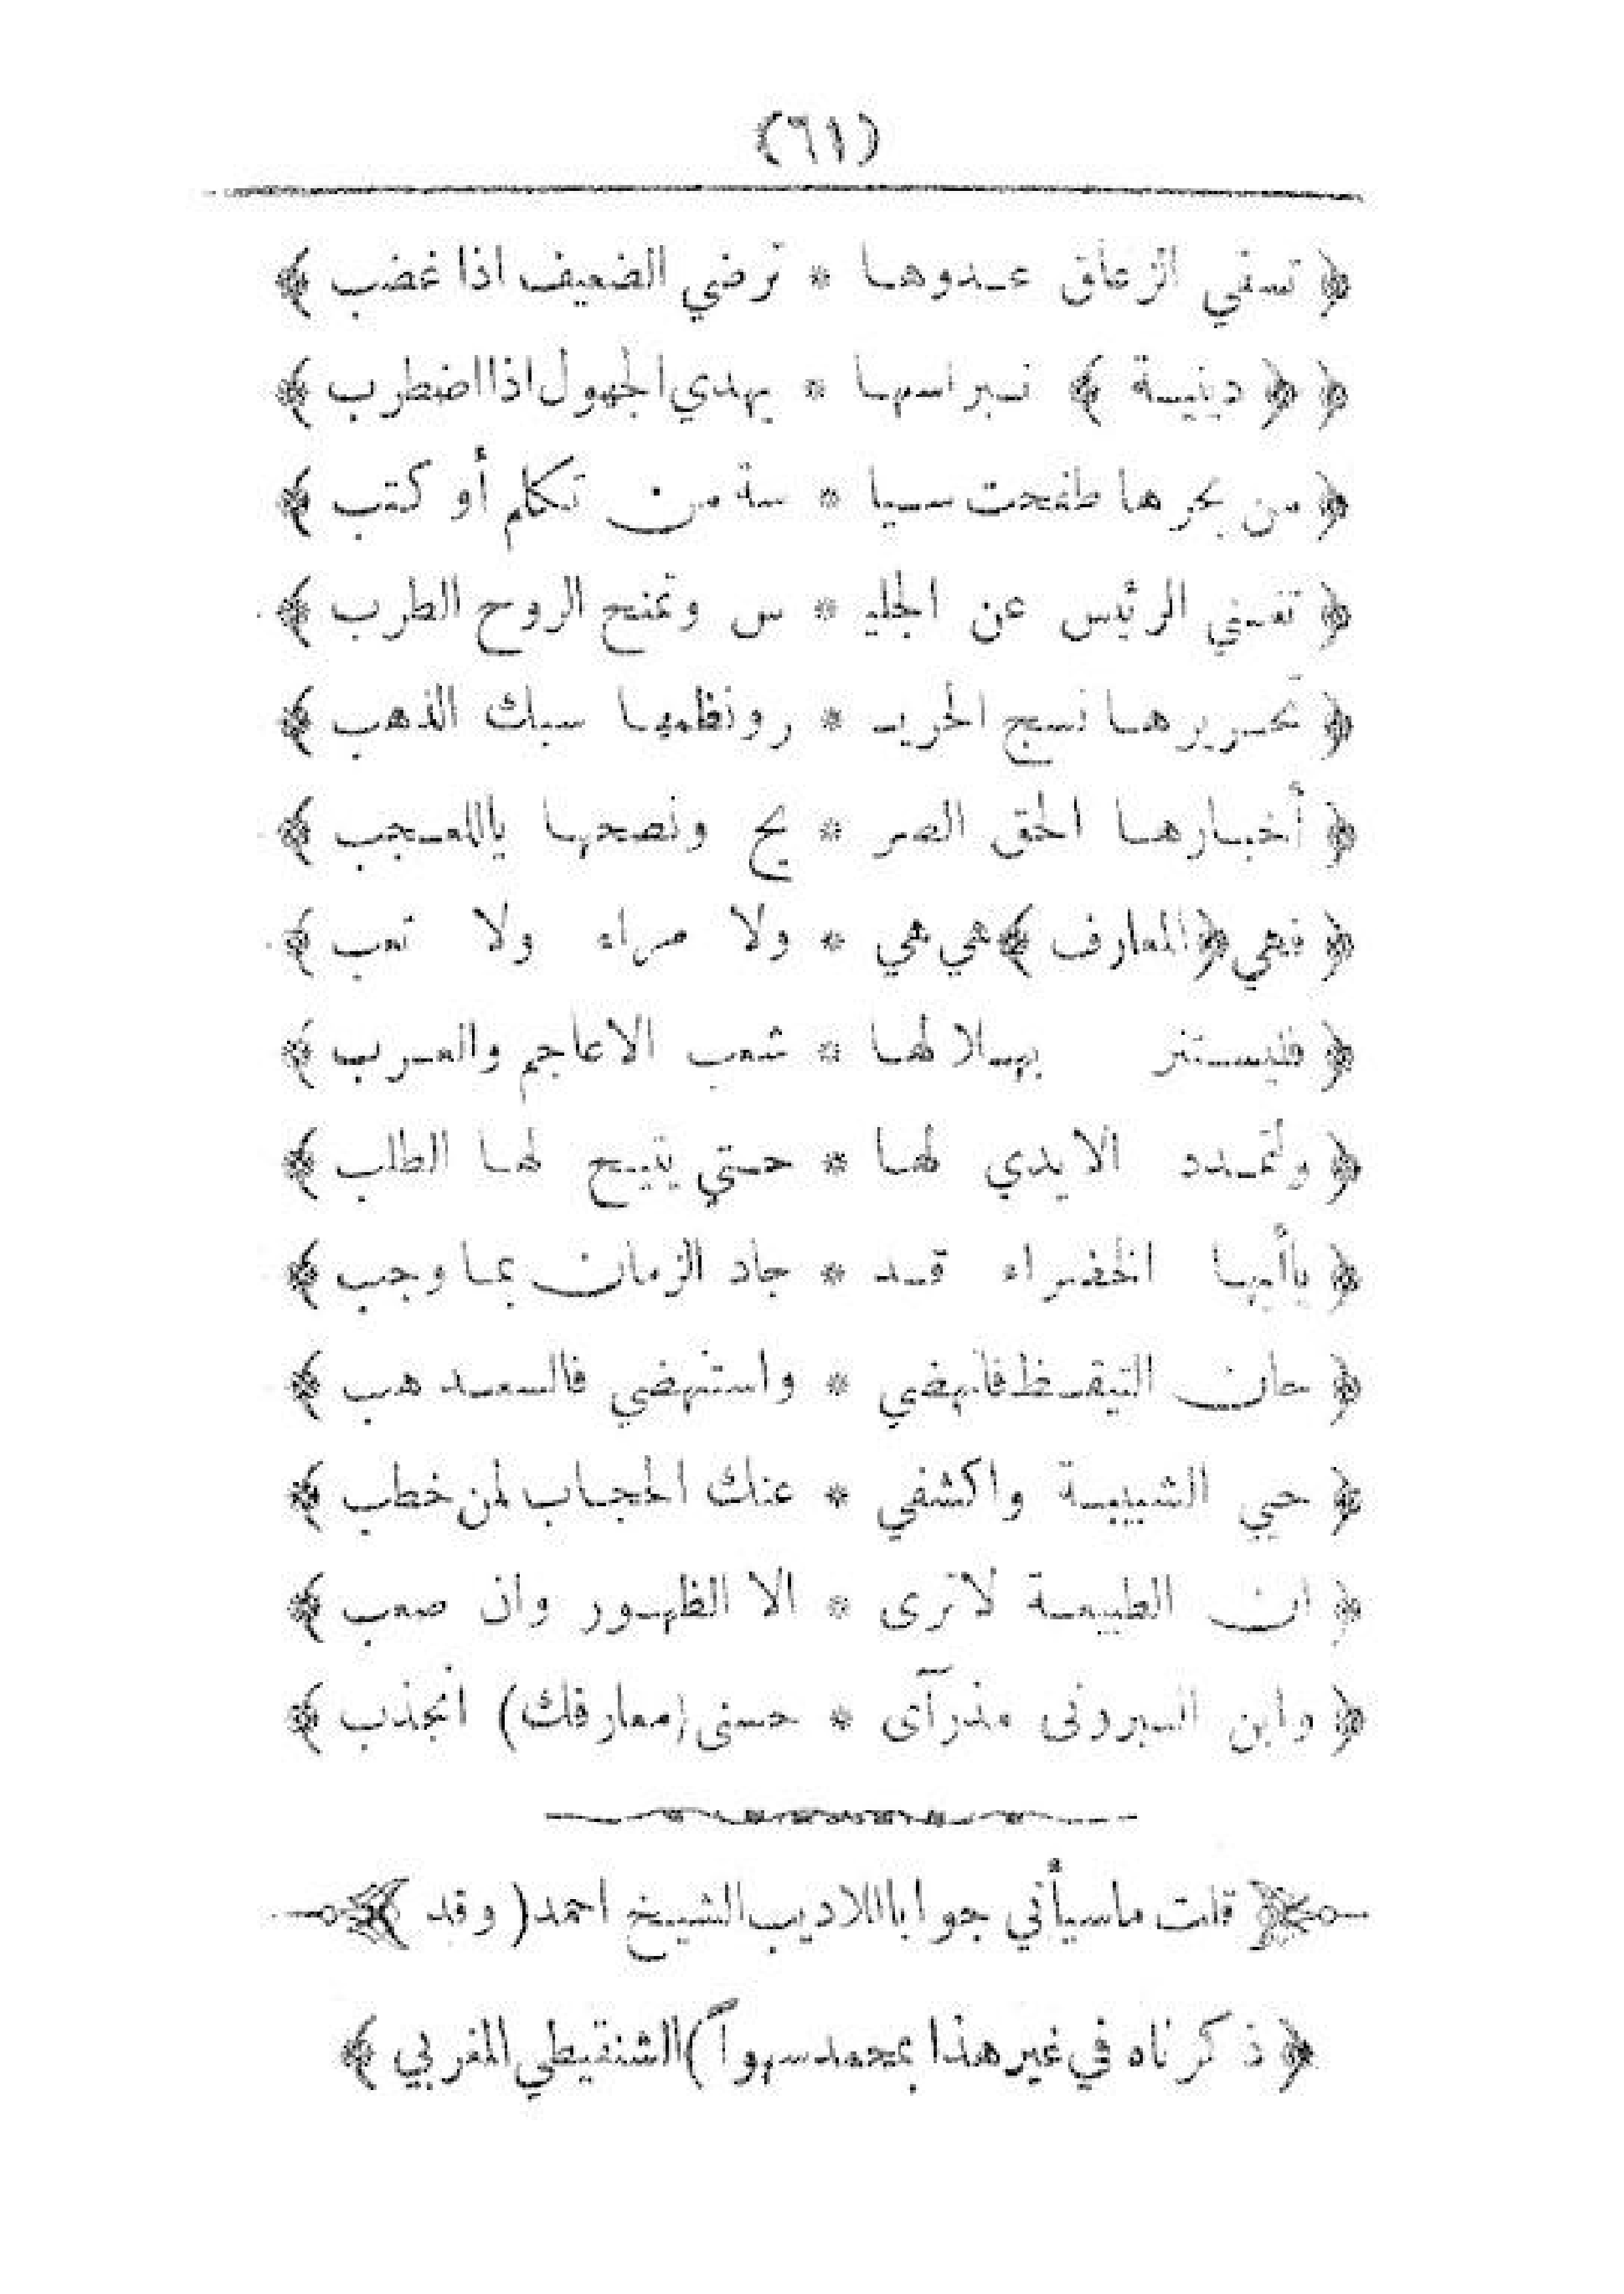 (٦١)
﴿ تسقي الزعاق عدوها * ترضي الضعيف اذا غضب ﴾
﴿ ﴿ دينية ﴾ نبراسها * يهدي الجهول اذا اضطرب ﴾
﴿ من بحرها طفحت سيا * سة من تكلم أو كتب ﴾
﴿ تغني الرئيس عن الجلي * س وتمنح الروح الطرب ﴾
﴿ تحريرها نسج الحريـ * ر ونظمها سبك الذهب ﴾
﴿ أخبارها الحق الصر * يح ونصحها ياللعجب ﴾
﴿ فهي ﴿ المعارف ﴾ هي هي * ولا مراء ولا تعب ﴾
﴿ فليستنر بهلالها * شعب الاعاجم والعرب ﴾
﴿ ولتمدد الايدي لها * حتي يتيح لها الطلب ﴾
﴿ ياأيها الخضراء قد * جاد الزمان بما وجب ﴾
﴿ حان التيقظ فانهضي * واستنهضي فالسعد هب ﴾
﴿ حيي الشبيبة واكشفي * عنك الحجاب لمن خطب ﴾
﴿ ان الطبيعة لا ترى * الا الظهور وان صعب ﴾
﴿ وابن البيرونى مذرآى * حسنى (معارفك) انجذب ﴾
﴿ قلت ماسيأتي جوابا للاديب الشيخ احمد ( وقد ﴾
﴿ ذكرناه في غير هذا بمحمد سهواً ) الشنقيطي المغربي ﴾